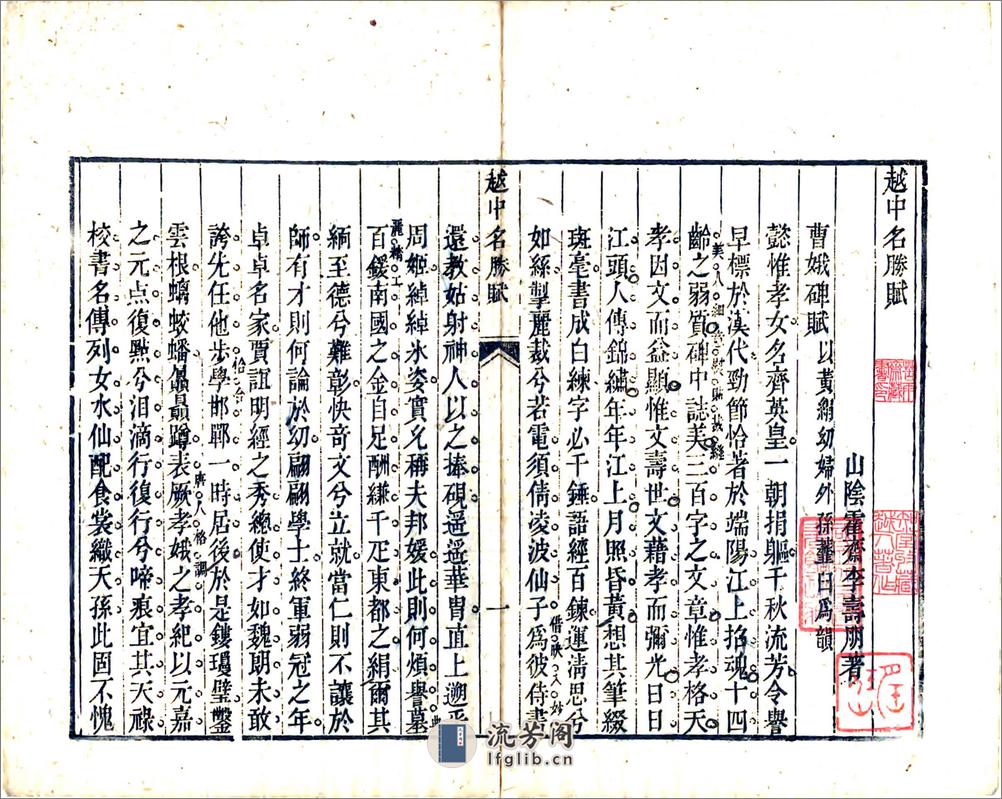 越中名勝賦
山陰霍齋李壽朋著
曹娥碑賦以黃絹幼婦外孫虀臼爲韻
懿惟孝女名齊英皇一朝捐軀千秋流芳令譽
早標於漢代勁節恰著於端陽江上招魂十四
齡之弱質碑中誌美三百字之文章惟孝格天
孝因文而益顯惟文壽世文藉孝而彌光日日
江頭人傳錦繡年年江上月照昏黃想其筆綴
斑毫書成白練字必千錘語經百鍊運淸思兮
如絲掣麗裁兮若電須倩凌波仙子爲彼侍書
越中名勝賦
一
還教姑射神人以之捧硯遥遥華胄直上遡乎
周姬綽綽氷姿實允稱夫邦媛此則何煩譽墓
百鍰南國之金自足酬縑千疋東都之絹爾其
緬至德兮難彰快竒文兮立就當仁則不讓於
師有才則何論於幼翩翩學士終軍弱冠之年
卓卓名家賈誼明經之秀總使才如魏朗未敢
誇先任他步學邯鄲一時居後於是鏤瓊壁鑿
雲根螭蛟蟠贔屭蹲表厥孝娥之孝紀以元嘉
之元点復點兮泪滴行復行兮啼痕宜其天祿
校書名傳列女水仙配食裳織天孫此固不愧
流芳阁
lfglib.cn